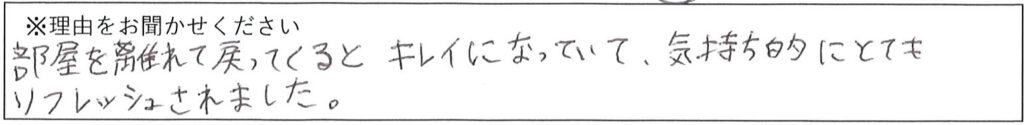 ※理由をお聞かせください
部屋を離れて戻ってくると キレイになっていて、気持ち的にとても
リフレッシュされました。